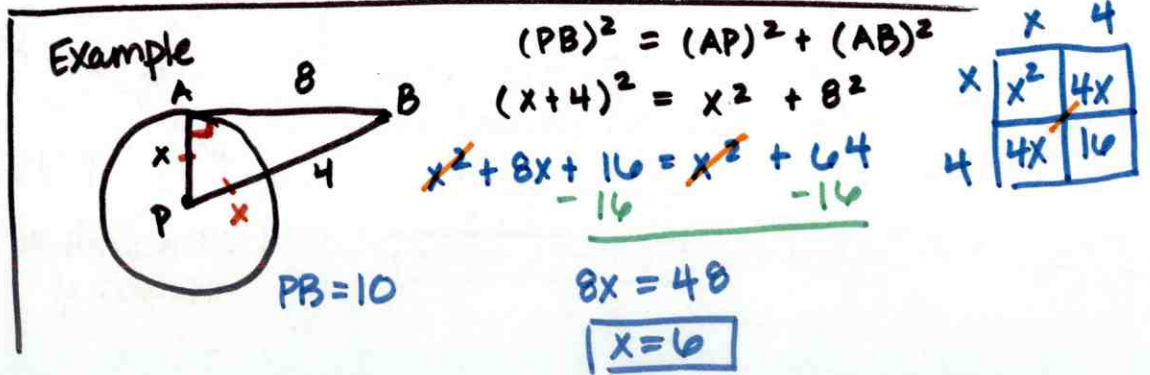 Example
A
8
B
x
4
P
x
PB = 10
(PB)² = (AP)² + (AB)²
(x+4)² = x² + 8²
x² + 8x + 16 = x² + 64
-16 -16
8x = 48
x = 6
x 4
x x² 4x
4 4x 16